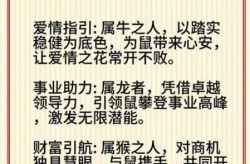 爱情指引: 属牛之人，以踏实
稳健为底色，为鼠带来心安，
让爱情之花常开不败。
事业助力: 属龙者，凭借卓越
领导力，引领鼠攀登事业高峰
，激发无限潜能。
财富引航: 属猴之人，对商机
独具慧眼，与鼠携手，共同开